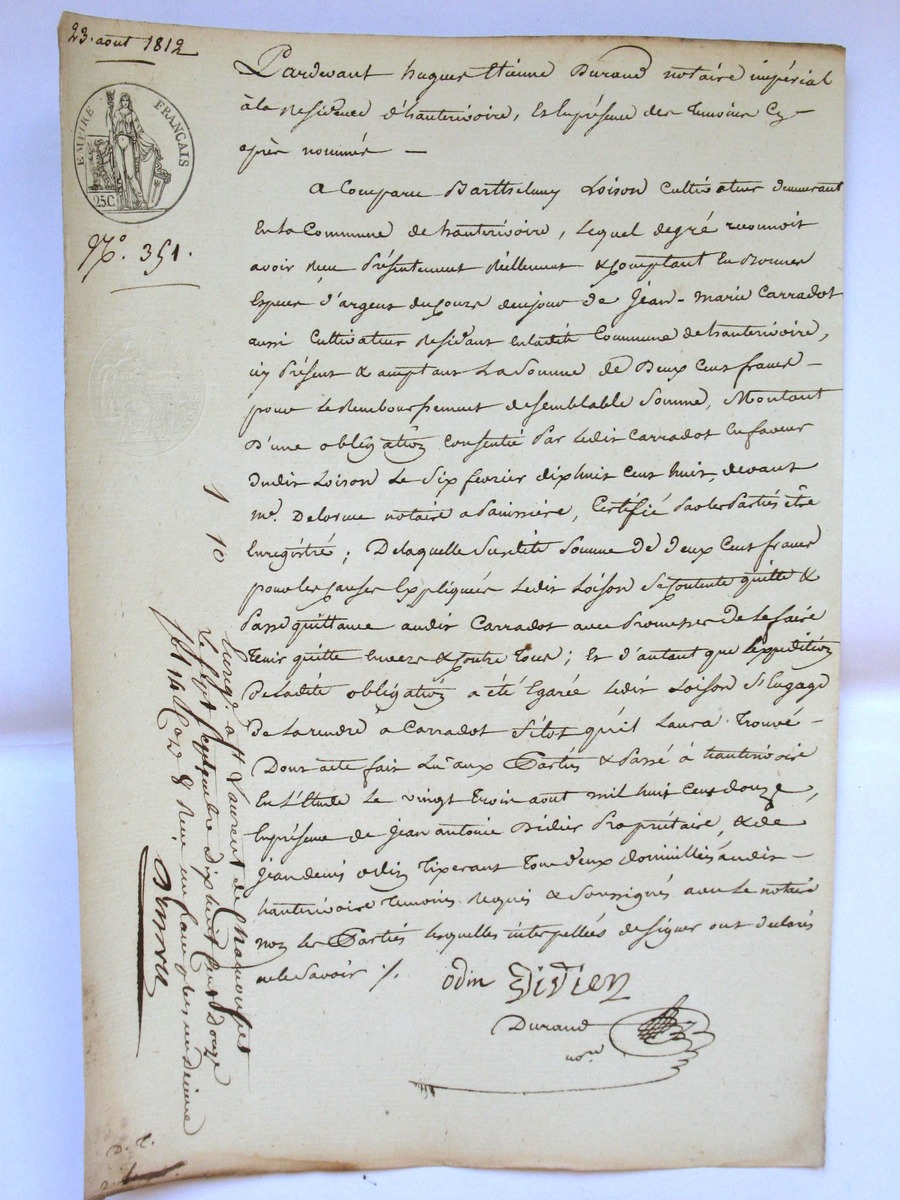 23. aout 1812
EMPIRE FRANÇAIS
25 C
N.º 351.
Pardevant hugues Etienne Durand notaire impérial
à la Residence d'hauterivoire, Et En présence des Temoins Cy-
après nommés —
a Comparu Barthelemy Loison Cultivateur demeurant
En la Commune de hauterivoire, lequel de gré reconnoit
avoir Reçu Présentement Réellement & Comptant En Bonnes
Especes d'argent du Cours de ce jour de Jean-marie Carradot
aussi Cultivateur Residant en ladite Commune de hauterivoire,
icy Présent & acceptant La Somme de Deux Cent francs —
pour le Remboursement de semblable Somme, Montant
D'une obligation Consentie Par ledit Carradot en faveur
Dudit Loison Le Six fevrier dix huit Cent huit, devant
me. Delorme notaire a Panissière, Certifié Par les Parties être
Enregistré; De laquelle Susdite Somme de deux Cent francs
pour les Causes Expliquées Ledit Loison Se Contente quitte &
Passe quittance audit Carradot avec Promesses De le faire
Tenir quitte Envers & Contre Tous; Et d'autant que l'expedition
De ladite obligation a été Egarée Ledit Loison S'Engage
De la rendre a Carradot Sitot qu'il L'aura Trouvé —
Dont acte fait Lu aux Parties & Passé à hauterivoire
En l'Etude Le vingt Trois aout mil huit Cent douze,
En présence de Jean antoine Didier Propriétaire, & de
Jean denis odin Tixerant Tous deux domiciliés audit —
hauterivoire Temoins Requis & Soussignés avec le notaire
non les Parties lesquelles interpellées de signer ont declarés
ne le Savoir ./.
odin Didier
Durand
nore
1 10
Enreg. a St Laurent de Chamousset
Le Sept Septembre dix huit Cent Douze
fol 14 Case 8 Reçu un franc dix Centimes